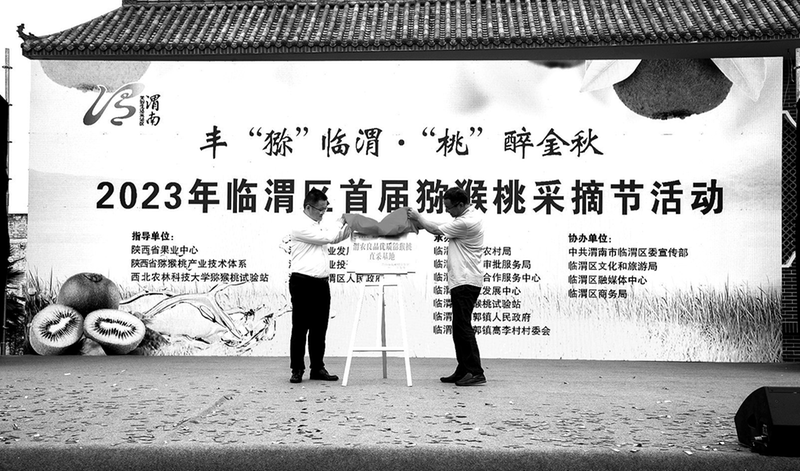 渭南
丰“猕”临渭·“桃”醉金秋
2023年临渭区首届猕猴桃采摘节活动
指导单位:
陕西省果业中心
陕西省猕猴桃产业技术体系
西北农林科技大学猕猴桃试验站
业发
业投
渭区人民政府
直采基地
承
临渭 农村局
临渭 审批服务局
临渭 合作服务中心
临渭 发展中心
临渭 猴桃试验站
临渭 郭镇人民政府
临渭 郭镇高李村村委会
协办单位:
中共渭南市临渭区委宣传部
临渭区文化和旅游局
临渭区融媒体中心
临渭区商务局